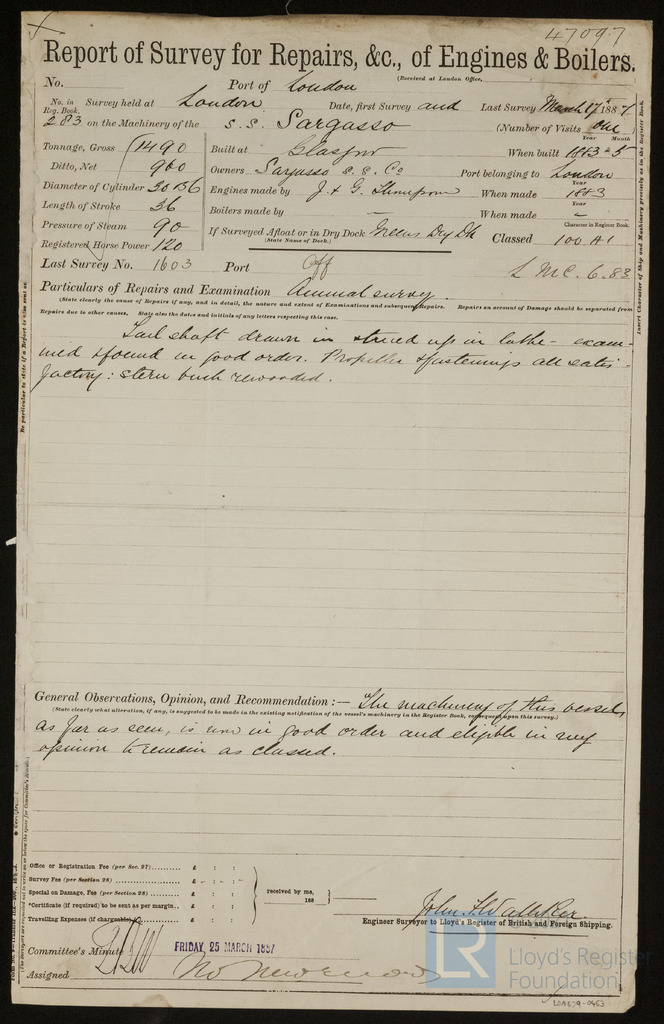 47097
Report of Survey for Repairs, &c., of Engines & Boilers.
(Received at London Office,
No. Port of London
No. in Reg. Book. Survey held at London Date, first Survey and Last Survey March 17th 1887
283 on the Machinery of the S. S. Sargasso (Number of Visits one
Tonnage, Gross 1490 Built at Glasgow When built 1883 - 5
Year Month
Ditto, Net 960 Owners Sargasso S. S. Co Port belonging to London
Diameter of Cylinder 30 & 56 Engines made by J. & G. Thompson When made 1883
Year
Length of Stroke 36 Boilers made by – When made –
Year
Pressure of Steam 90 If Surveyed Afloat or in Dry Dock Greens Dry Dk Classed 100 A1
(State Name of Dock.) Character in Register Book.
Registered Horse Power 120
Last Survey No. 1603 Port Off L M C. 6.83
Particulars of Repairs and Examination Annual survey.
(State clearly the cause of Repairs if any, and in detail, the nature and extent of Examinations and subsequent Repairs. Repairs on account of Damage should be separated from
Repairs due to other causes. State also the dates and initials of any letters respecting this case.
Tail shaft drawn in & trued up in lathe - exam-
ined & found in good order. Propeller & fastenings all satis-
factory: stern bush rewooded.
General Observations, Opinion, and Recommendation :— The machinery of this vessel,
(State clearly what alteration, if any, is suggested to be made in the existing notification of the vessel's machinery in the Register Book, consequent upon this survey.)
as far as seen, is now in good order and eligible in my
opinion to remain as classed.
Office or Registration Fee (per Sec. 27)......... £ : :
Survey Fee (per Section 28)......... £ : :
Special on Damage, Fee (per Section 28)...... £ : :
*Certificate (if required) to be sent as per margin... £ : :
Travelling Expenses (if chargeable)......... £ : :
received by me,
188
John H. Walliker
Engineer Surveyor to Lloyd's Register of British and Foreign Shipping.
Committee's Minute FRIDAY, 25 MARCH 1887
Assigned
LR Lloyd's Register
Foundation
Insert Character of Ship and Machinery precisely as in the Register Book.